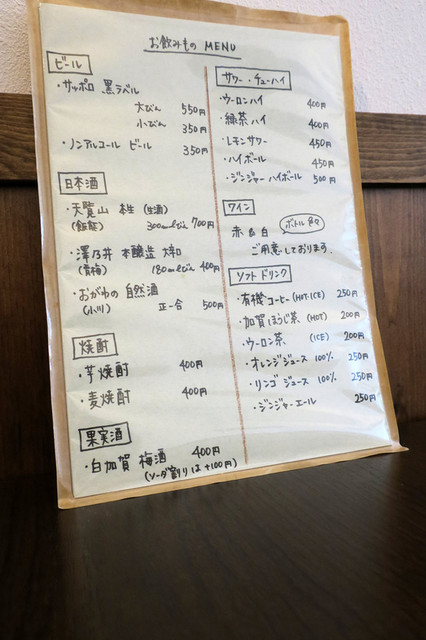 お飲みもの MENU
ビール
・サッポロ 黒ラベル
大びん 550円
小びん 350円
・ノンアルコール ビール 350円
日本酒
・天覧山 本生 (生酒)
(飯能) 300mlびん 700円
・澤乃井 本醸造 大和
(青梅) 180mlびん 400円
・おがわの 自然酒
(小川) 正一合 500円
焼酎
・芋焼酎 400円
・麦焼酎 400円
果実酒
・白加賀 梅酒 400円
(ソーダ割りは +100円)
サワー・チューハイ
・ウーロンハイ 400円
・緑茶ハイ 400円
・レモンサワー 450円
・ハイボール 450円
・ジンジャーハイボール 500円
ワイン
赤 & 白 ボトル
ご用意しております。
ソフトドリンク
・有機コーヒー (HOT・ICE) 250円
・加賀ほうじ茶 (HOT) 200円
・ウーロン茶 (ICE) 200円
・オレンジジュース 100% 250円
・リンゴジュース 100% 250円
・ジンジャーエール 250円